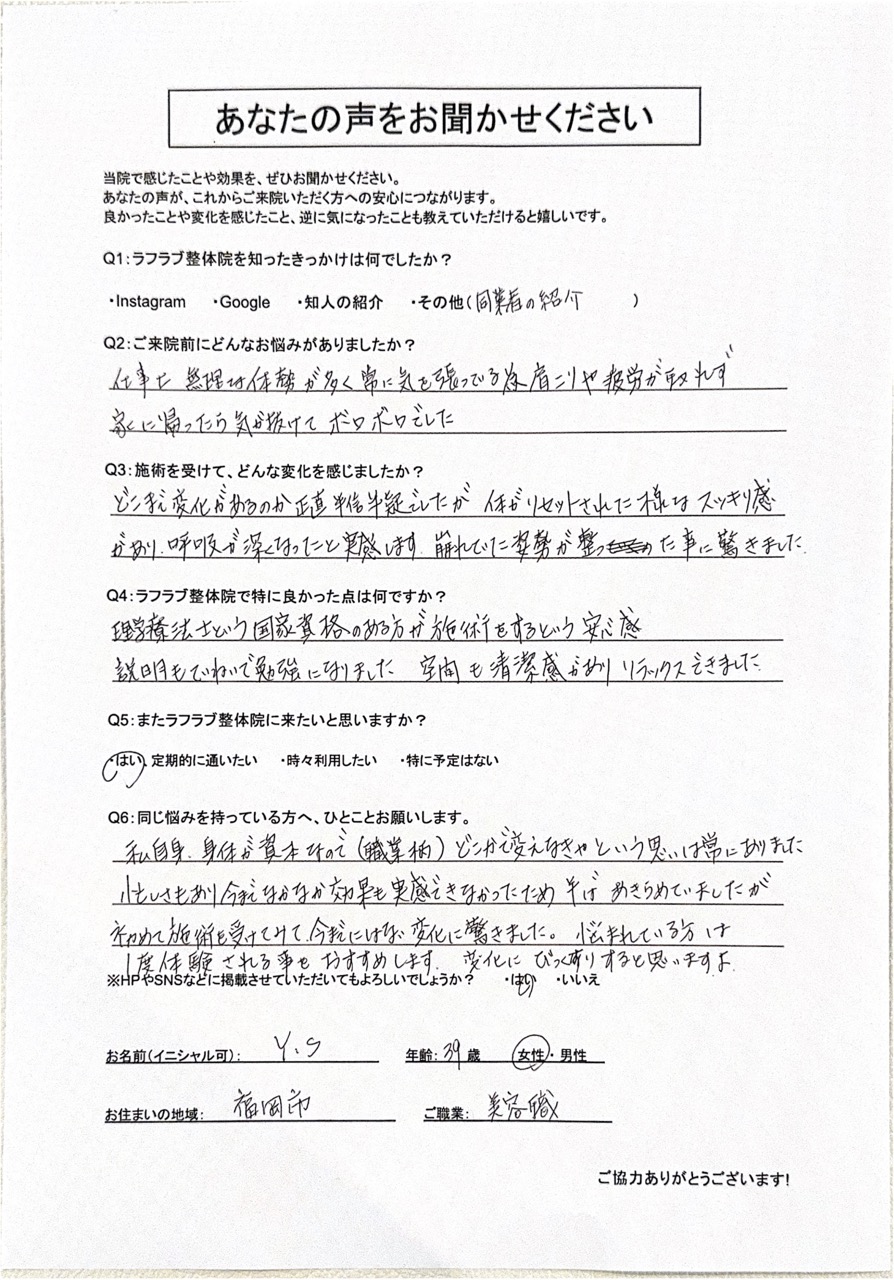 あなたの声をお聞かせください
当院で感じたことや効果を、ぜひお聞かせください。
あなたの声が、これからご来院いただく方への安心につながります。
良かったことや変化を感じたこと、逆に気になったことも教えていただけると嬉しいです。
Q1：ラフラブ整体院を知ったきっかけは何でしたか？
・Instagram ・Google ・知人の紹介 ・その他（同業者の紹介 ）
Q2：ご来院前にどんなお悩みがありましたか？
仕事上 無理な体勢が多く常に気を張っている為 肩こりや疲労が取れず
家に帰ったら気が抜けて ボロボロでした
Q3：施術を受けて、どんな変化を感じましたか？
どこまで変化があるのか正直半信半疑でしたが 体がリセットされた様なスッキリ感
があり、呼吸が深くなったと実感します。崩れていた姿勢が整った事に驚きました。
Q4：ラフラブ整体院で特に良かった点は何ですか？
理学療法士という国家資格のある方が施術をするという安心感
説明もていねいで勉強になりました 空間も清潔感があり リラックスできました。
Q5：またラフラブ整体院に来たいと思いますか？
・はい、定期的に通いたい ・時々利用したい ・特に予定はない
Q6：同じ悩みを持っている方へ、ひとことお願いします。
私自身、身体が資本なので（職業柄）どこかで変えなきゃという思いは常にありました
忙しさもあり今までなかなか効果も実感できなかったため 半ば あきらめていましたが
初めて施術を受けてみて、今までにはない変化に驚きました。 悩まれている方は
1度体験される事をおすすめします。 変化に びっくりすると思いますよ。
※HPやSNSなどに掲載させていただいてもよろしいでしょうか？ ・はい ・いいえ
お名前（イニシャル可）： Y.S 年齢：39 歳 女性・男性
お住まいの地域： 福岡市 ご職業： 美容職
ご協力ありがとうございます！